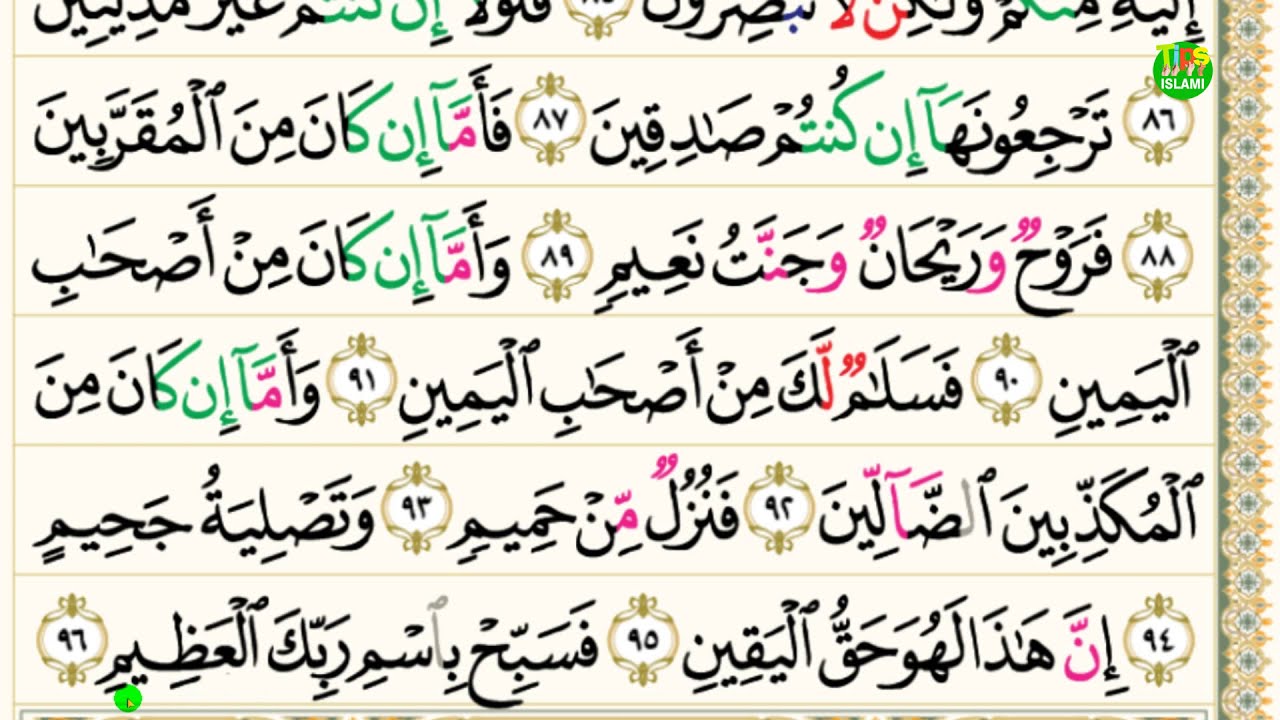 إِلَيْهِ مِنكُمْ وَلَٰكِن لَّا تُبْصِرُونَ ٨٥ فَلَوْلَا إِن كُنتُمْ غَيْرَ مَدِينِينَ
TIPS
ISLAMI
٨٦ تَرْجِعُونَهَآ إِن كُنتُمْ صَٰدِقِينَ ٨٧ فَأَمَّآ إِن كَانَ مِنَ ٱلْمُقَرَّبِينَ
٨٨ فَرَوْحٌ وَرَيْحَانٌ وَجَنَّتُ نَعِيمٍ ٨٩ وَأَمَّآ إِن كَانَ مِنْ أَصْحَٰبِ
ٱلْيَمِينِ ٩٠ فَسَلَٰمٌ لَّكَ مِنْ أَصْحَٰبِ ٱلْيَمِينِ ٩١ وَأَمَّآ إِن كَانَ مِنَ
ٱلْمُكَذِّبِينَ ٱلضَّآلِّينَ ٩٢ فَنُزُلٌ مِّنْ حَمِيمٍ ٩٣ وَتَصْلِيَةُ جَحِيمٍ
٩٤ إِنَّ هَٰذَا لَهُوَ حَقُّ ٱلْيَقِينِ ٩٥ فَسَبِّحْ بِٱسْمِ رَبِّكَ ٱلْعَظِيمِ ٩٦